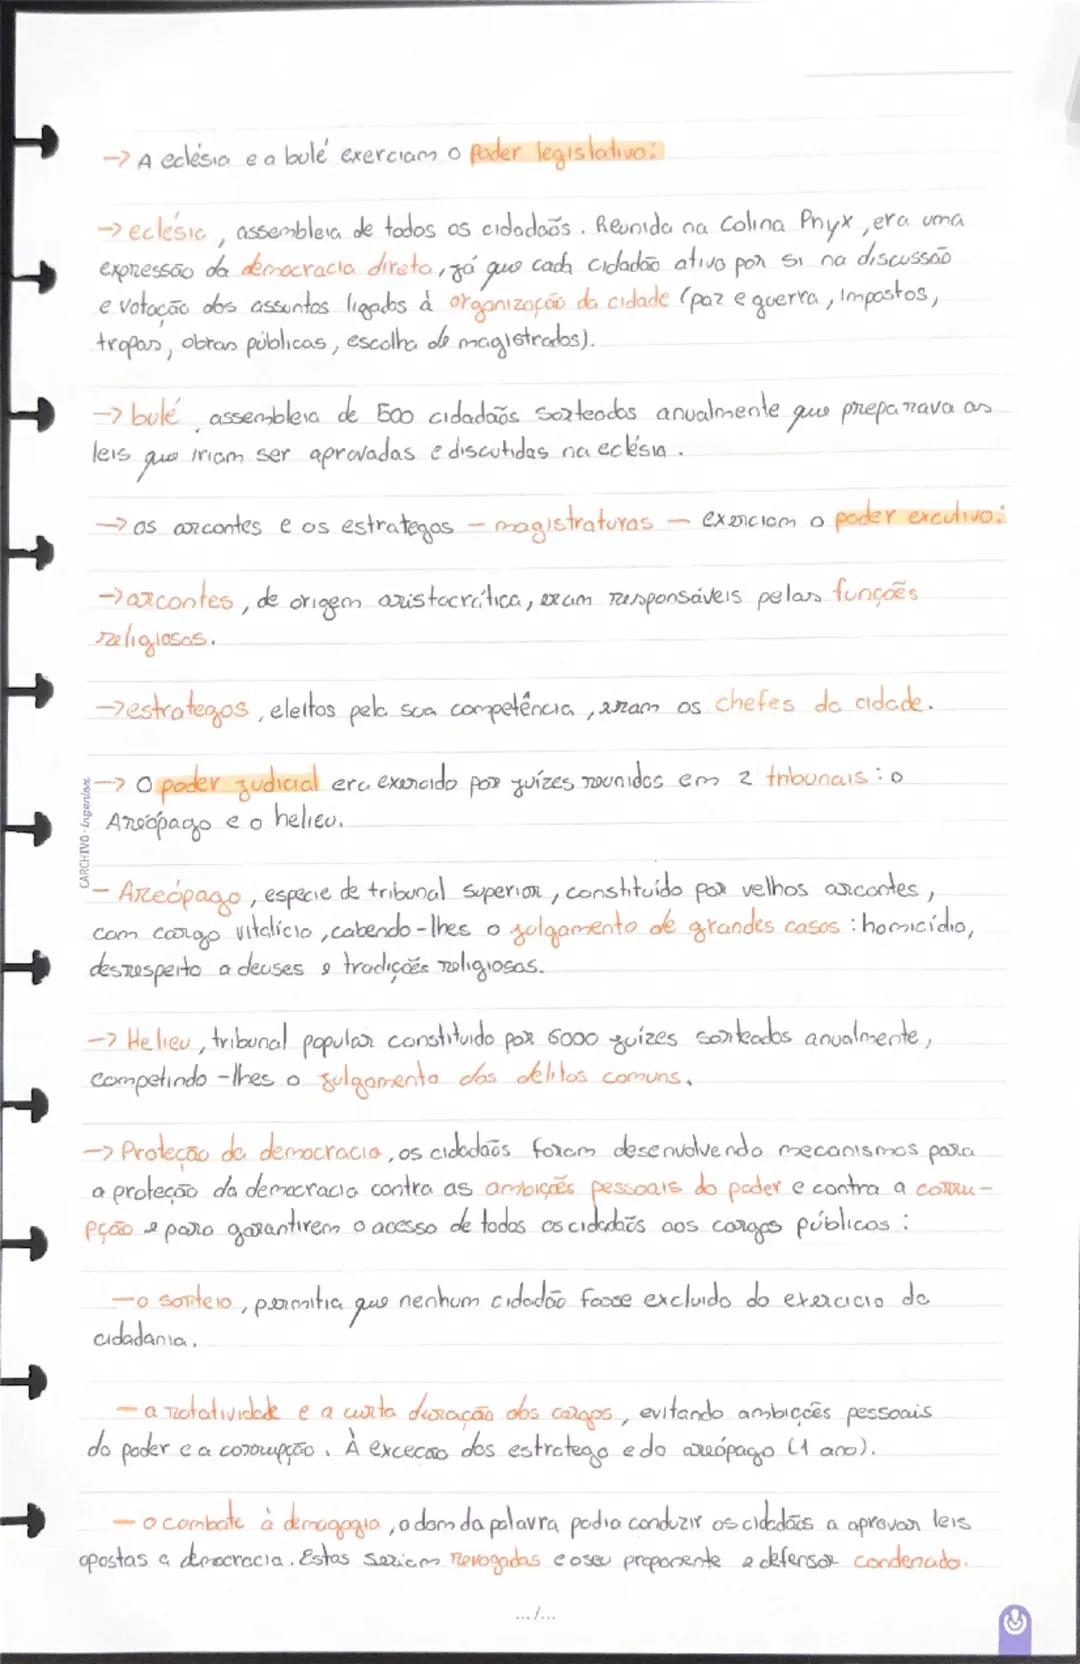 → A eclésia e a bulé exerciam o poder legislativo:
→ eclésia, assembleia de todos os cidadãos. Reunida na Colina Pnyx, era uma
expressão da democracia direta, já que cada cidadão ativo por si na discussão
e votação dos assuntos ligados à organização da cidade (paz e guerra, impostos,
tropas, obras públicas, escolha de magistrados).
→ bulé, assembleia de 500 cidadãos sorteados anualmente que preparava as
leis que iriam ser aprovadas e discutidas na eclésia.
→ os arcontes e os estrategos - magistraturas - exerciam o poder excutivo:
→ arcontes, de origem aristocrática, eram responsáveis pelas funções
religiosas.
→ estrategos, eleitos pela sua competência, eram os chefes da cidade.
→ O poder judicial era exercido por juízes reunidos em 2 tribunais: o
Areópago e o helieu.
CARCHIVO·Ingeniox
- Areópago, espécie de tribunal superior, constituído por velhos arcontes,
com cargo vitalício, cabendo-lhes o julgamento de grandes casos: homicídio,
desrespeito a deuses e tradições religiosas.
→ Helieu, tribunal popular constituido por 6000 juízes sorteados anualmente,
competindo-lhes o julgamento dos delitos comuns.
→ Proteção da democracia, os cidadãos foram desenvolvendo mecanismos para
a proteção da democracia contra as ambições pessoais do poder e contra a corru-
pção e para garantirem o acesso de todos os cidadãos aos cargos públicos:
- o sorteio, permitia que nenhum cidadão fosse excluido do exercicio da
cidadania.
- a rotatividade e a curta duração dos cargos, evitando ambições pessoais
do poder e a corrupção. À exceção dos estratego e do areópago (1 ano).
- o combate à demagogia, o dom da palavra podia conduzir os cidadãos a aprovar leis
opostas a democracia. Estas seriam revogadas e o seu proponente e defensor condenado.
.../...